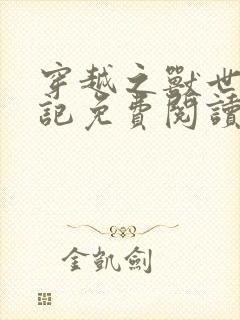 穿越之獸世
記免費閱讀
金凱劍